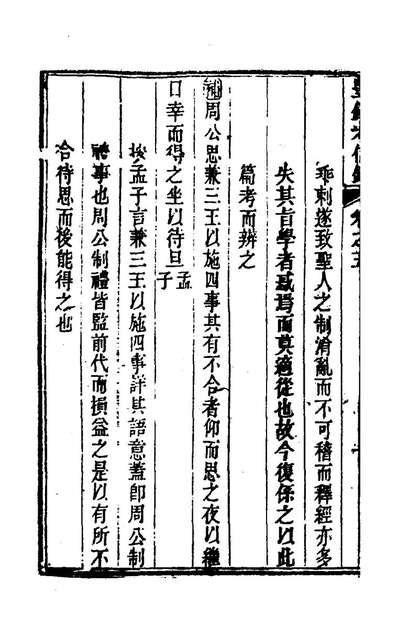 豐鎬考信錄 卷之五
乖刺遂致聖人之制淆亂而不可稽而釋經亦多
失其旨學者惑焉而莫適從也故今復係之以此
篇考而辨之
補周公思兼三王以施四事其有不合者仰而思之夜以繼
日幸而得之坐以待旦孟子
按孟子言兼三王以施四事詳其語意蓋卽周公制
禮事也周公制禮皆監前代而損益之是以有所不
合待思而後能得之也